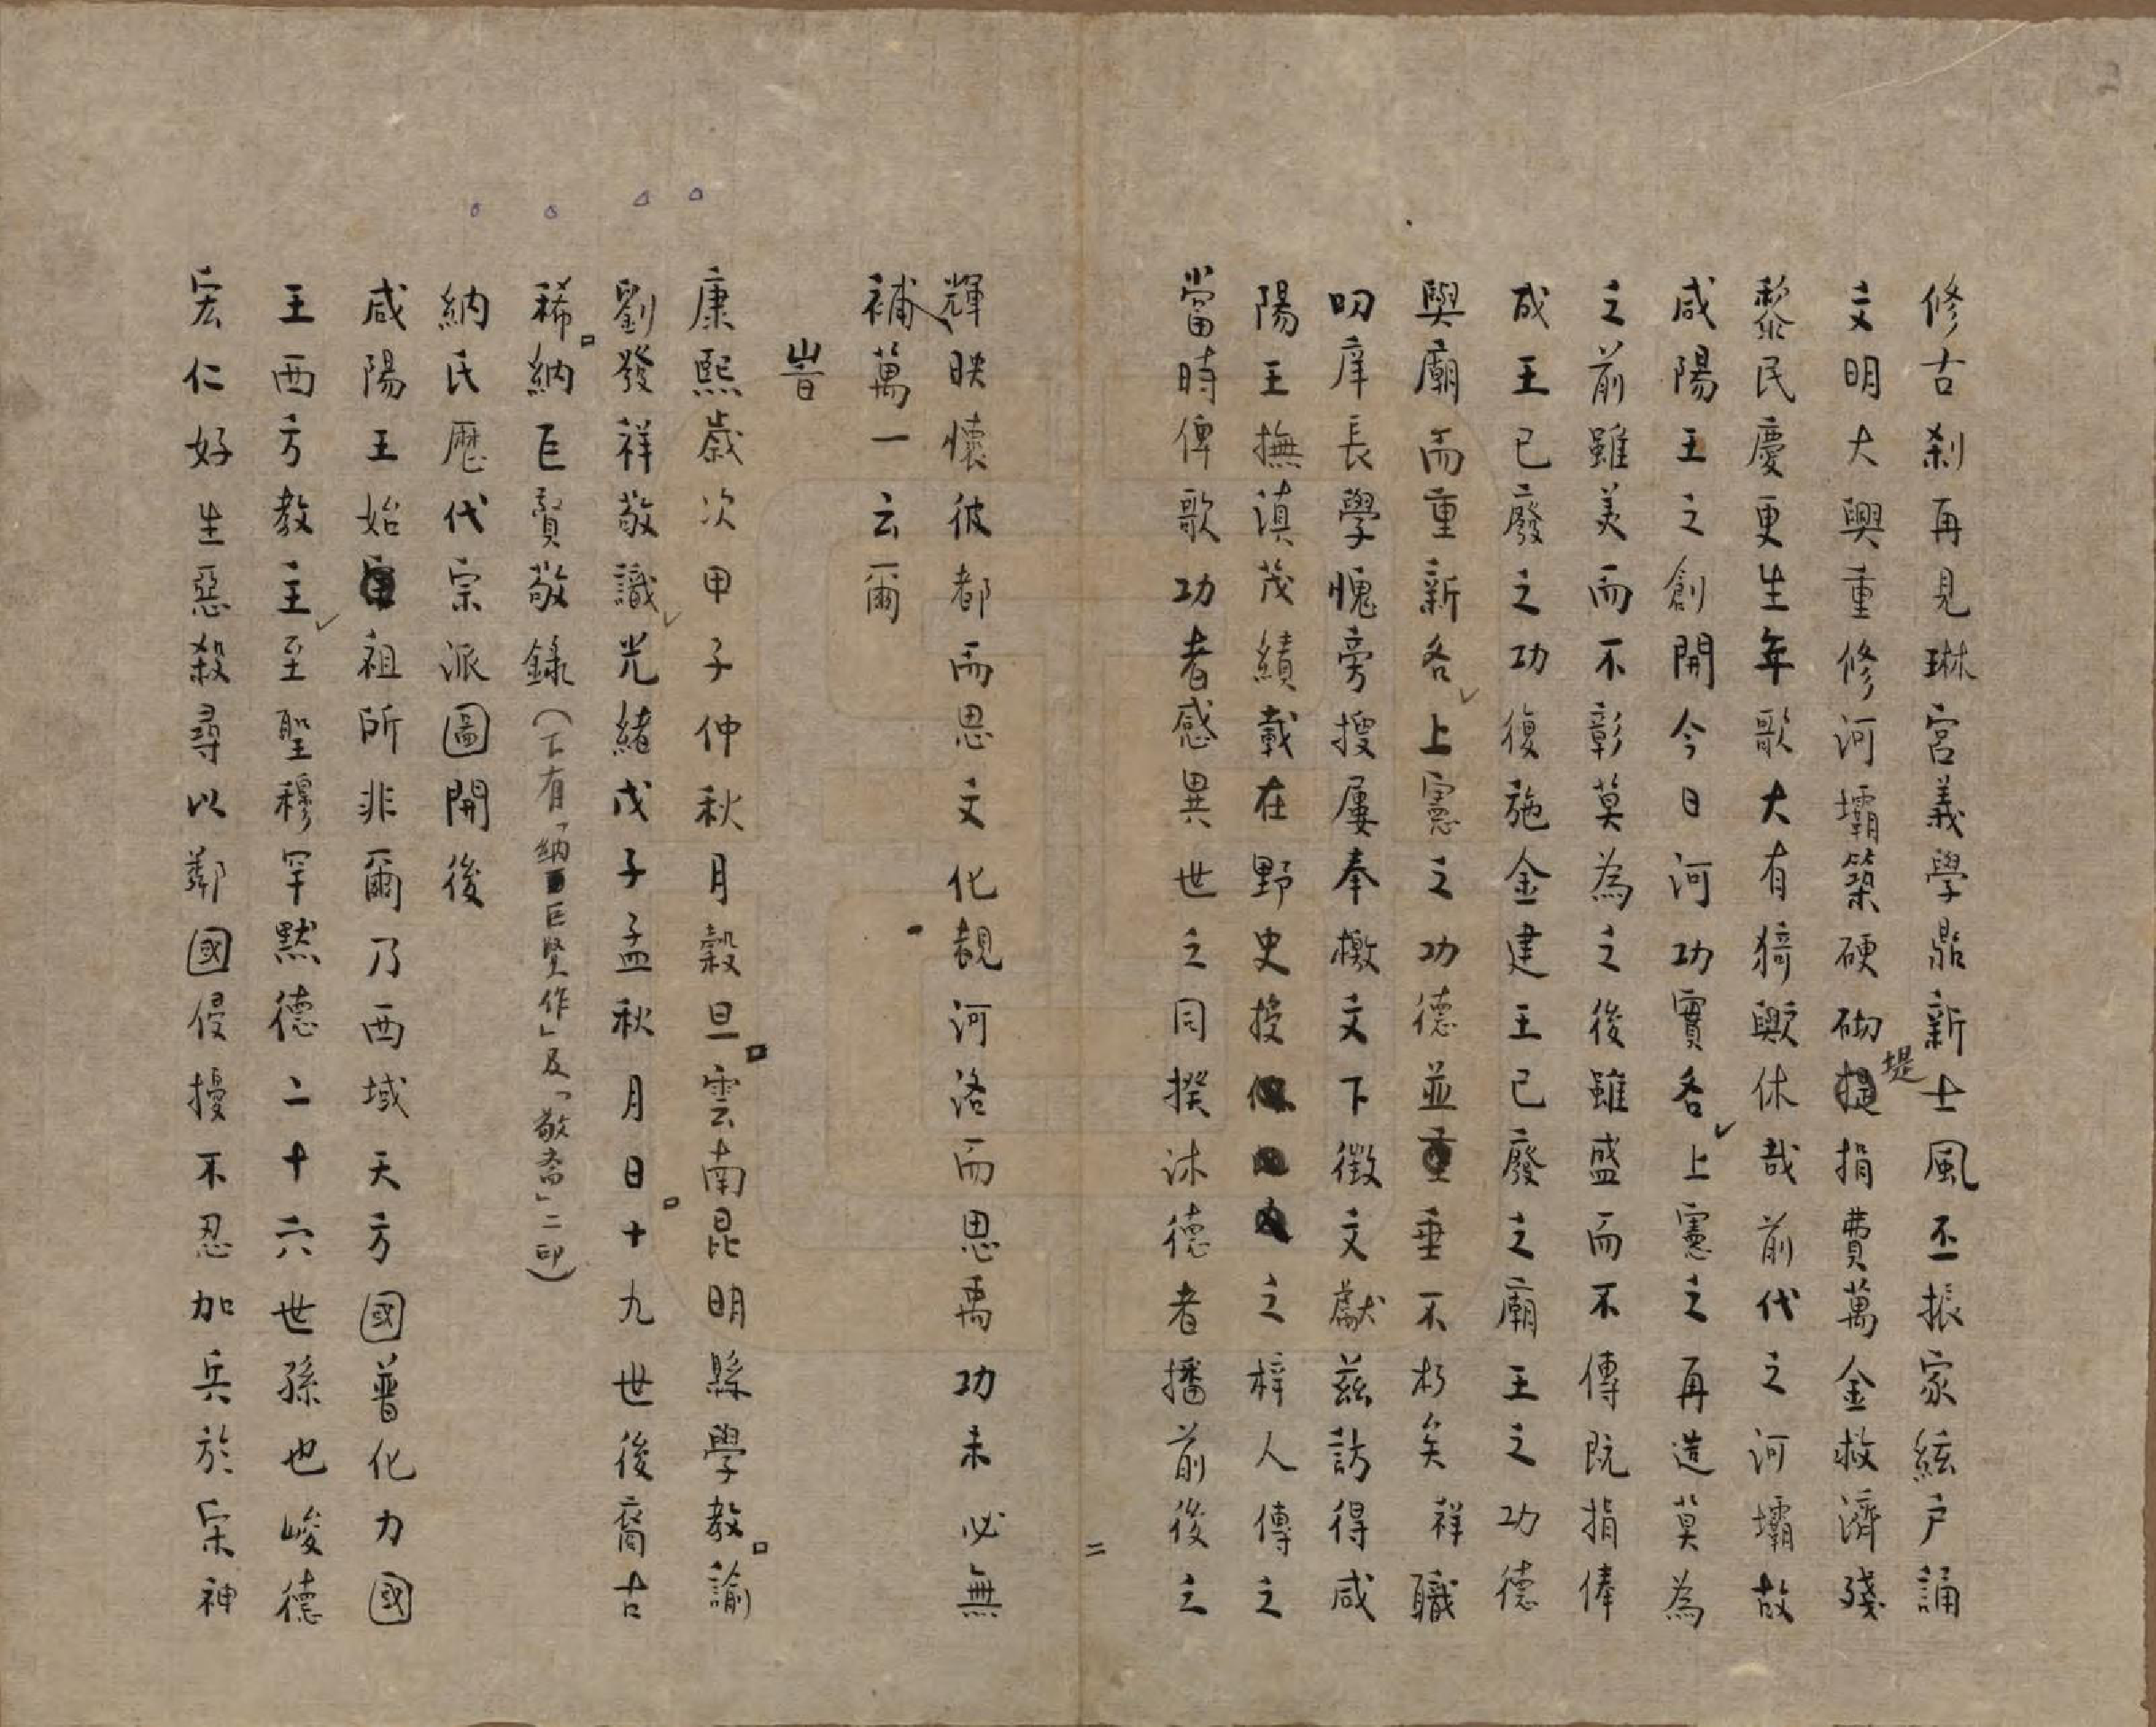 修古刹再見琳宮義學鼎新士風丕振家絃户誦
文明大興重修河壩築硬砌堤捐費萬金救濟殘
黎民慶更生年歌大有猗歟休哉前代之河壩故
咸陽王之創開今日河功實各上憲之再造莫為
之前雖美而不彰莫為之後雖盛而不傳既捐俸
成王已廢之功復施金建王已廢之廟王之功德
與廟而重新各上憲之功德並垂不朽矣祥職
叨庠長學愧旁搜屢奉檄文下徵文獻兹訪得咸
陽王撫滇茂績載在野史授之梓人傳之
當時俾歌功者感異世之同揆沐德者播前後之
輝映懷彼都而思文化覩河洛而思禹功未必無
補萬一云爾
旹
康熙歲次甲子仲秋月穀旦雲南昆明縣學教諭
劉發祥敬識光緒戊子孟秋月日十九世後裔古
稀納巨賢敬錄(下有「納巨堅作」及「敬斋」二印)
納氏歷代宗派圖開後
咸陽王始祖所非爾乃西域天方國普化力國
王西方教主至聖穆罕默德二十六世孫也峻德
宏仁好生惡殺尋以鄰國侵擾不忍加兵於宋神
2